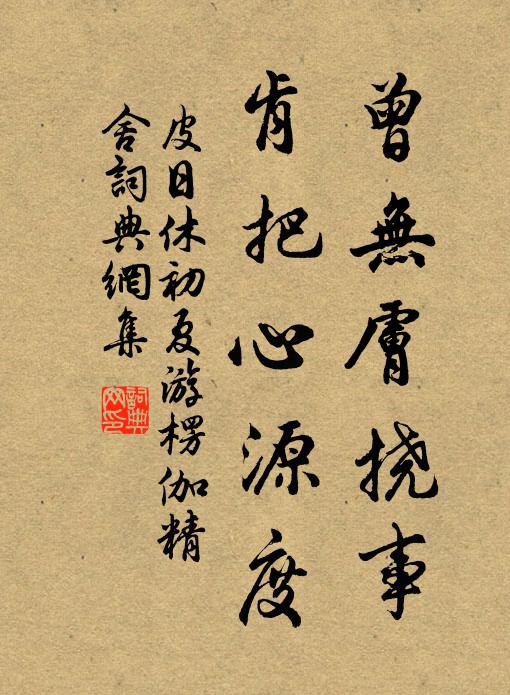 曾無膚撓事
肯把心源度
皮日休初夏游楞伽精
舍詞典網集
詞典
网印